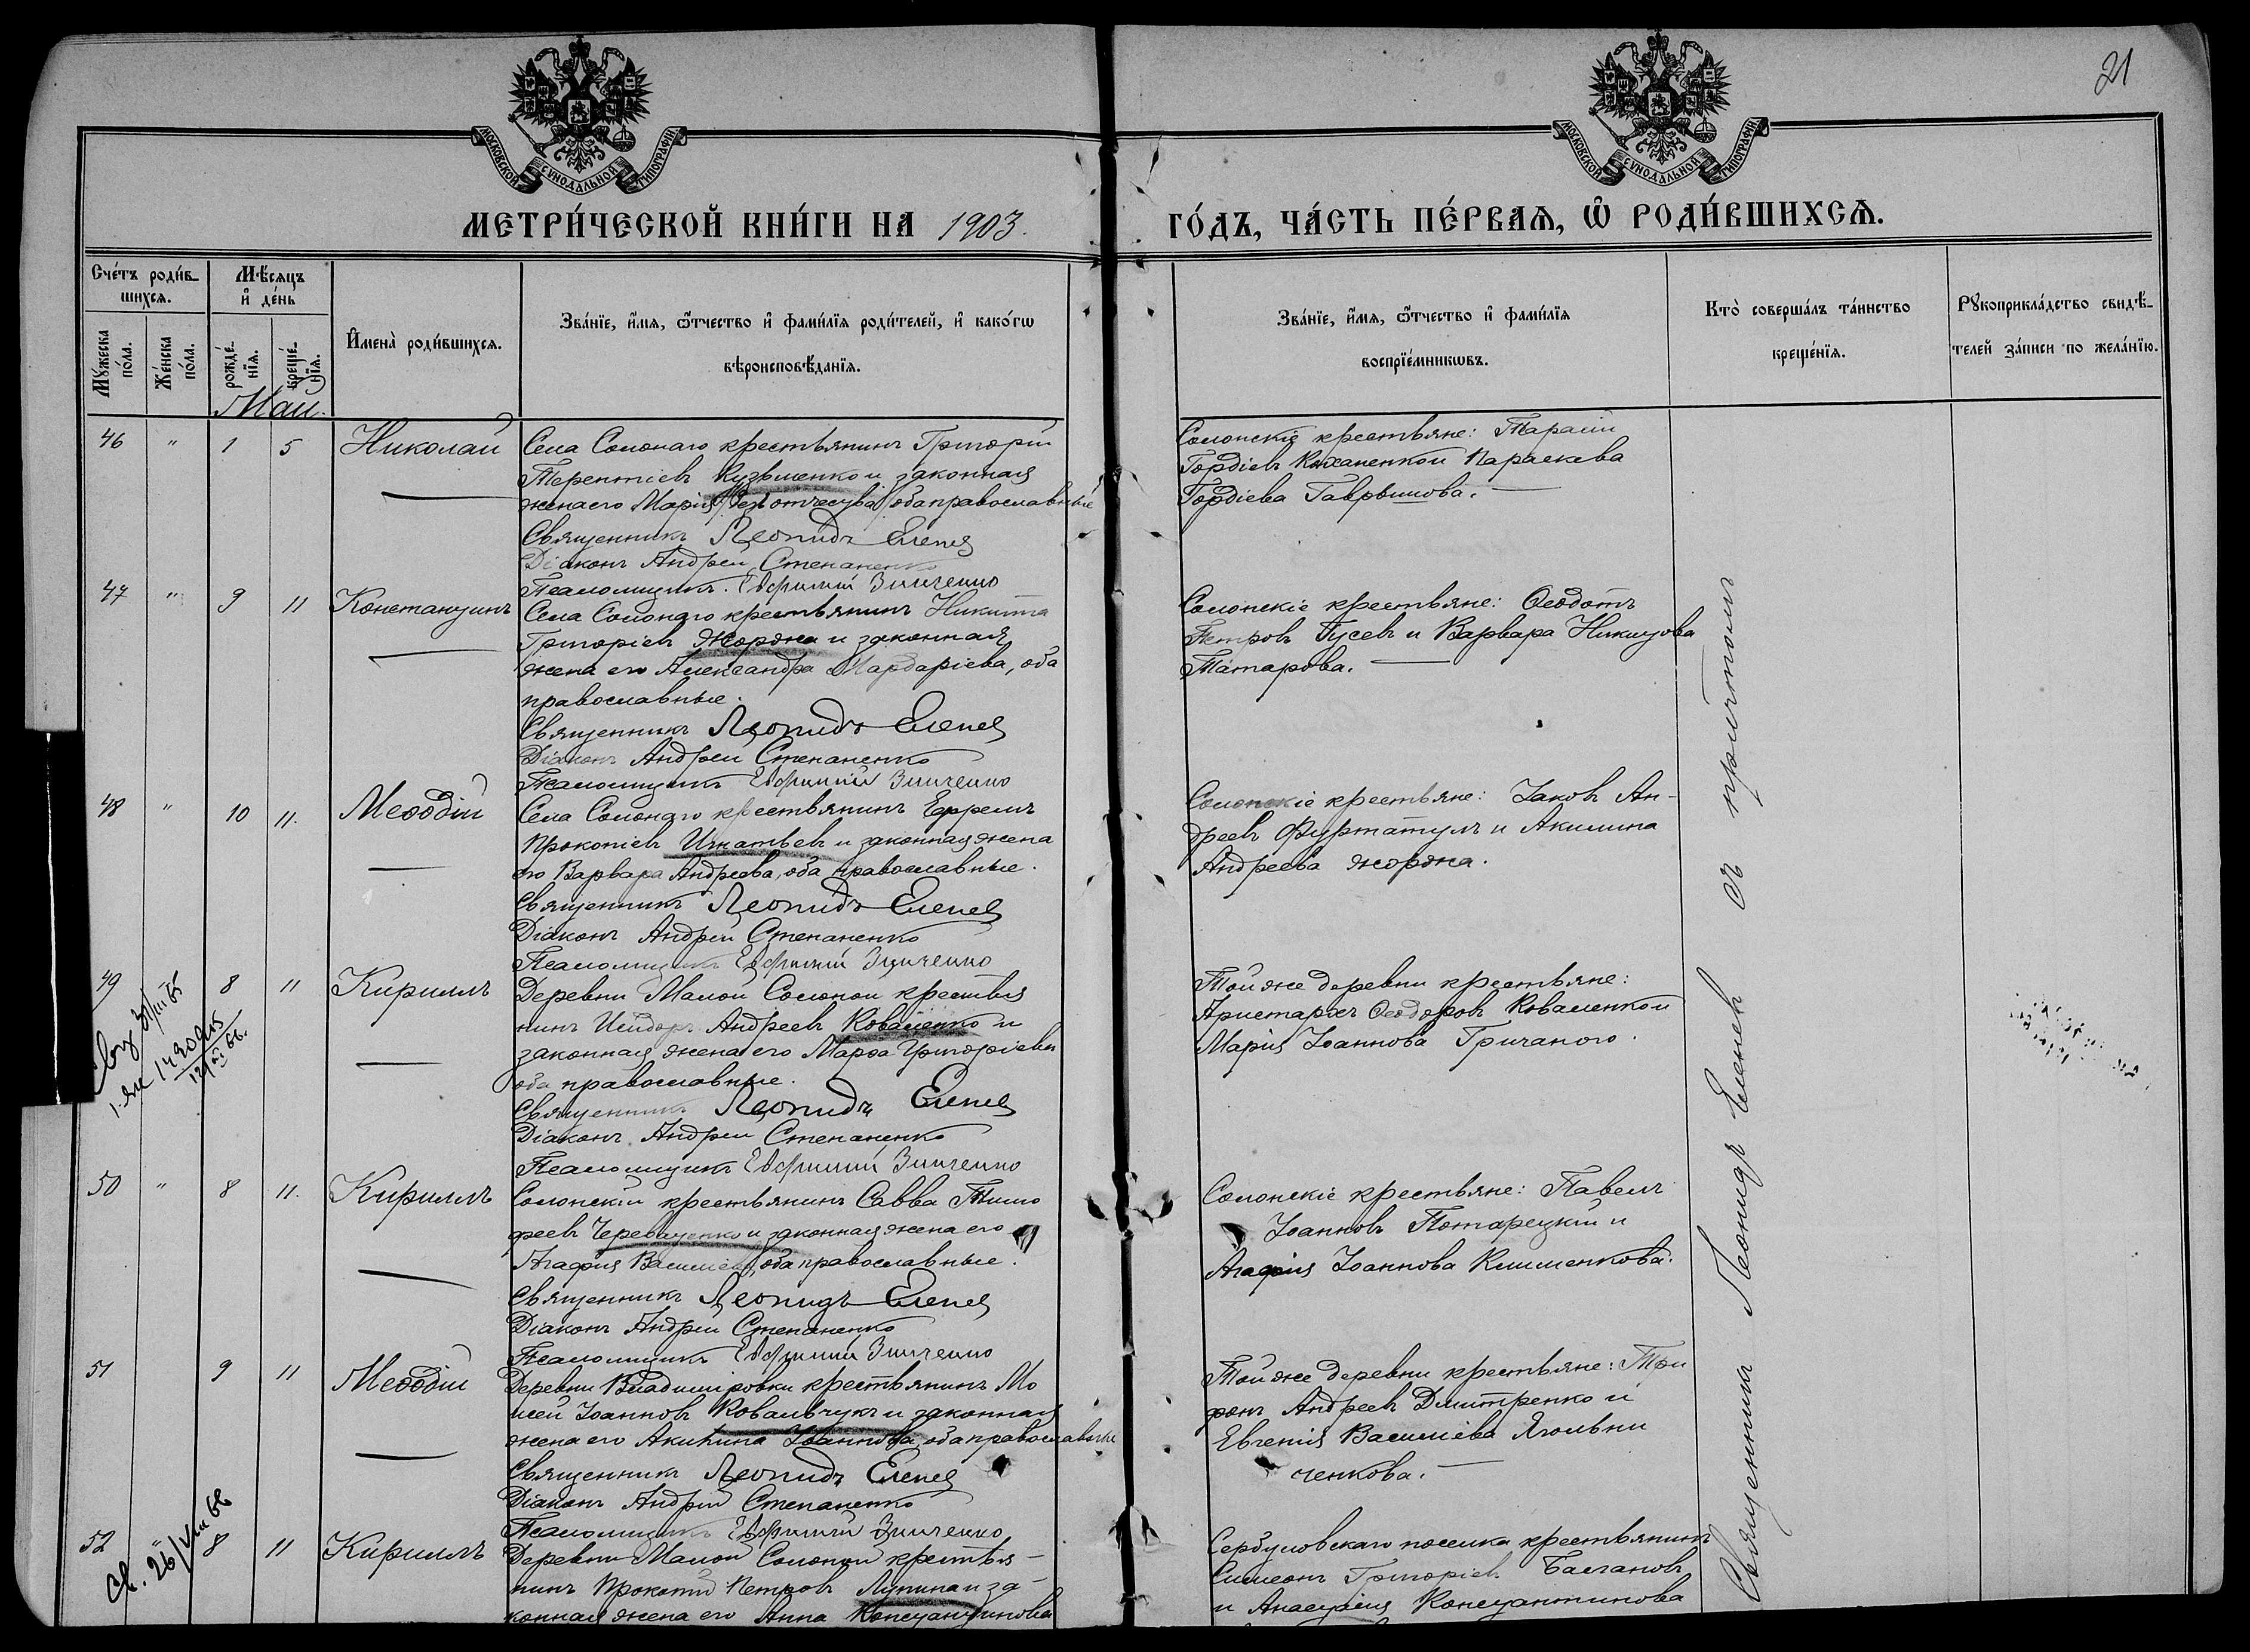 21
МОСКОВСКОЙ СѴНОДАЛЬНОЙ ТИПОГРАФІИ
МОСКОВСКОЙ СѴНОДАЛЬНОЙ ТИПОГРАФІИ
МЕТРИ́ЧЕСКОЙ КНИ́ГИ НА 1903. ГО́ДЪ, ЧА́СТЬ ПЕ́РВАѦ, Ѡ҆ РОДИ́ВШИХСѦ.
Сче́тъ роди́вшихсѧ.
Мꙋ́жеска по́ла.
Же́нска по́ла.
Мѣ́сѧцъ и҆ де́нь
рожде́нїѧ.
креще́нїѧ.
И҆мена̀ роди́вшихсѧ.
Зва́нїе, и҆́мѧ, ѻ҆́тчество и҆ фами́лїѧ роди́телей, и҆ како́гѡ
вѣроисповѣ́данїѧ.
Зва́нїе, и҆́мѧ, ѻ҆́тчество и҆ фами́лїѧ
воспрїе́мникѡвъ.
Кто̀ соверша́лъ та́инство
креще́нїѧ.
Рꙋкоприкла́дство свидѣ́-
телей за́писи по жела́нїю.
Май.
46 " 1 5 Николай
Села Солонаго крестьянинъ Григорій
Терентіевъ Кузьменко и законная
жена его Марія /безъ отчества/ оба православные
Священникъ Леонидъ Еленев
Діаконъ Андрей Степаненко
Псаломщикъ Евфимій Зинченко
Солонскіе крестьяне: Тарасій
Гордіевъ Коханенко и Параскева
Гордіева Гаврвшова.
47 " 9 11 Константинъ
Села Солонаго крестьянинъ Никита
Григоріевъ Жоржа и законная
жена его Александра Мардаріева, оба
православные.
Священникъ Леонидъ Еленев
Діаконъ Андрей Степаненко
Псаломщикъ Евфимій Зинченко
Солонскіе крестьяне: Ѳеодотъ
Петровъ Гусевъ и Варвара Никитова
Татарова.
48 " 10 11. Меѳодій
Села Солонаго крестьянинъ Ефремъ
Прокопіевъ Игнатьевъ и законная жена
его Варвара Андреева, оба православные.
Священникъ Леонидъ Еленев
Діаконъ Андрей Степаненко
Псаломщикъ Евфимій Зинченко
Солонскіе крестьяне: Іаковъ Ан-
дреевъ Фуртатулъ и Акилина
Андреева Жоржа.
49 8 11 Кириллъ
Деревни Малой Солоной крестья
нинъ Исидоръ Андреевъ Коваленко и
законная жена его Марѳа Григоріева
оба православные.
Священникъ Леонидъ Еленев
Діаконъ Андрей Степаненко
Псаломщикъ Евфимій Зинченко
Той же деревни крестьяне:
Аристархъ Ѳеодоровъ Коваленко и
Марія Іоаннова Гричаного.
50 " 8 11. Кириллъ
Солонскій крестьянинъ Савва Тимо
феевъ Череващенко и законная жена его
Агафия Василіева, оба православные.
Священникъ Леонидъ Еленев
Діаконъ Андрей Степаненко
Псаломщикъ Евфимій Зинченко
Солонскіе крестьяне: Павелъ
Іоанновъ Потарецкій и
Агафия Іоаннова Клименкова.
51 9 11 Меѳодій
Деревни Владиміровки крестьянинъ Мо
исей Іоанновъ Ковальчукъ и законная
жена его Акилина Іоаннова, оба православные
Священникъ Леонидъ Еленев
Діаконъ Андрей Степаненко
Псаломщикъ Евфимій Зинченко
Той же деревни крестьяне: Три
фонъ Андреевъ Дмитренко и
Евгенія Василіева Ягольни
ченкова.
52 " 8 11 Кириллъ
Св. 26/VIII 66
Деревни Малой Солоной крестья-
нинъ Прокопій Петровъ Лупина и за-
конная жена его Анна Константинова
Сербуловскаго поселка крестьянинъ
Симеонъ Григоріевъ Балгановъ
и Анастасія Константинова
Священникъ Леонидъ Еленевъ съ причтомъ